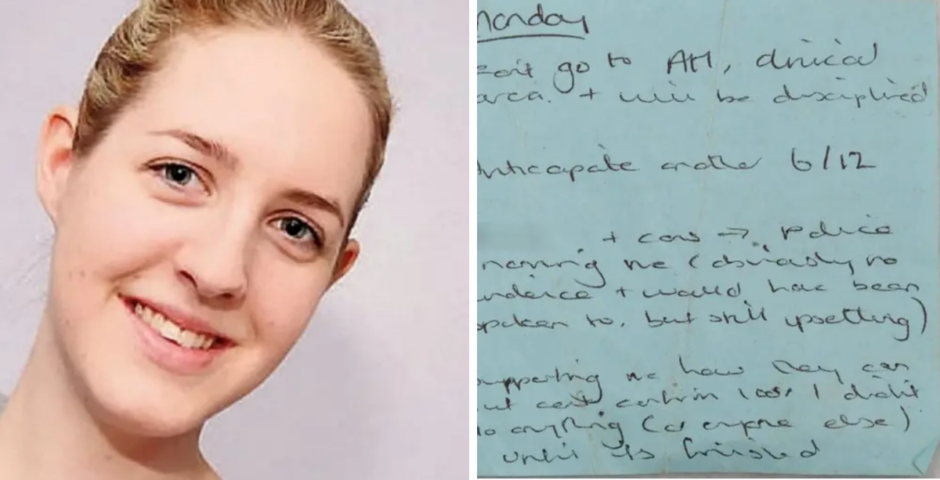 Monday
can't go to clinical
area. + will be disciplined
Anticapate another 6/12
+ cons → police
naming me (obviously no
evidence + would have been
spoken to, but still upsetting)
supporting me how they can
but cant confirm I didn't
do anything (or anyone else)
until its finished